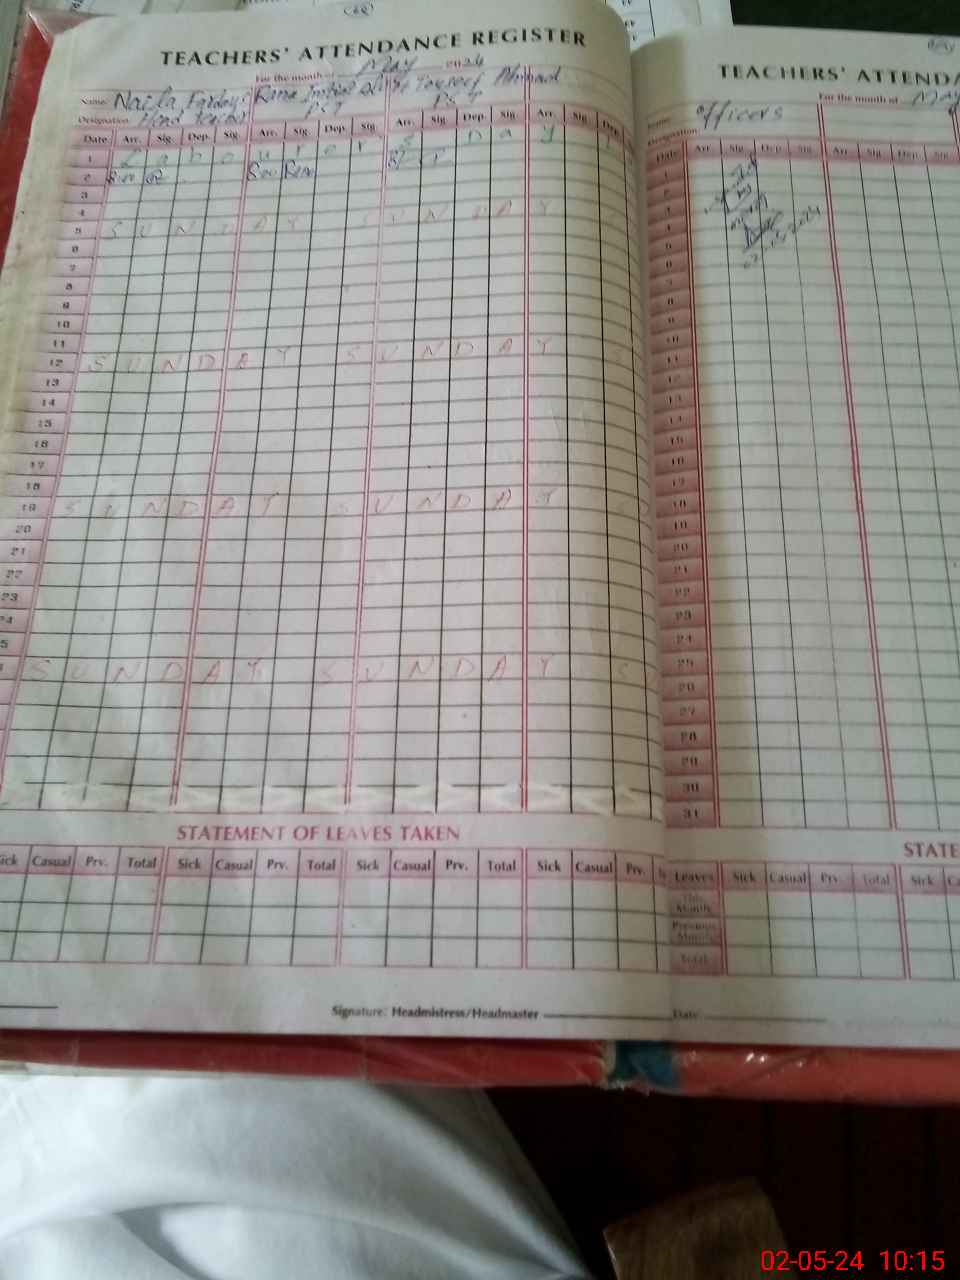 TEACHERS' ATTENDANCE REGISTER
For the month of May 2024
Name: Naila
Designation: Head Teacher PST PST
Date Arr. Sig. Dep. Sig. Arr. Sig. Dep. Sig. Arr. Sig. Dep. Sig. Arr. Sig. Dep.
1 Labour's Day
2
3
4
5 SUNDAY SUNDAY S
6
7
8
9
10
11
12 SUNDAY SUNDAY S
13
14
15
16
17
18
19 SUNDAY SUNDAY
20
21
22
23
24
5
SUNDAY SUNDAY S
STATEMENT OF LEAVES TAKEN
Sick Casual Prv. Total Sick Casual Prv. Total Sick Casual Prv. Total Sick Casual Prv.
Signature: Headmistress/Headmaster
TEACHERS' ATTENDA
For the month of May
Name: Officers
Designation:
Date Arr. Sig. Dep. Sig. Arr. Sig. Dep. Sig.
1
2
3
4
5
6
7
8
9
10
11
12
13
14
15
16
17
18
19
20
21
22
23
24
25
26
27
28
29
30
31
STATE
Leaves Sick Casual Prv. Total Sick
This Month
Previous Month
Total
Date
02-05-24 10:15